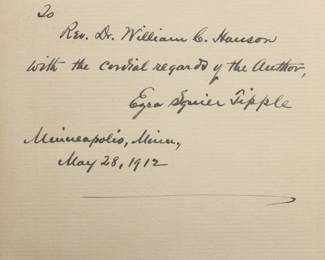 To
Rev. Dr. William C. Hanson
with the cordial regards of the Author,
Ezra Squier Tipple
Minneapolis, Minn.,
May 28, 1912